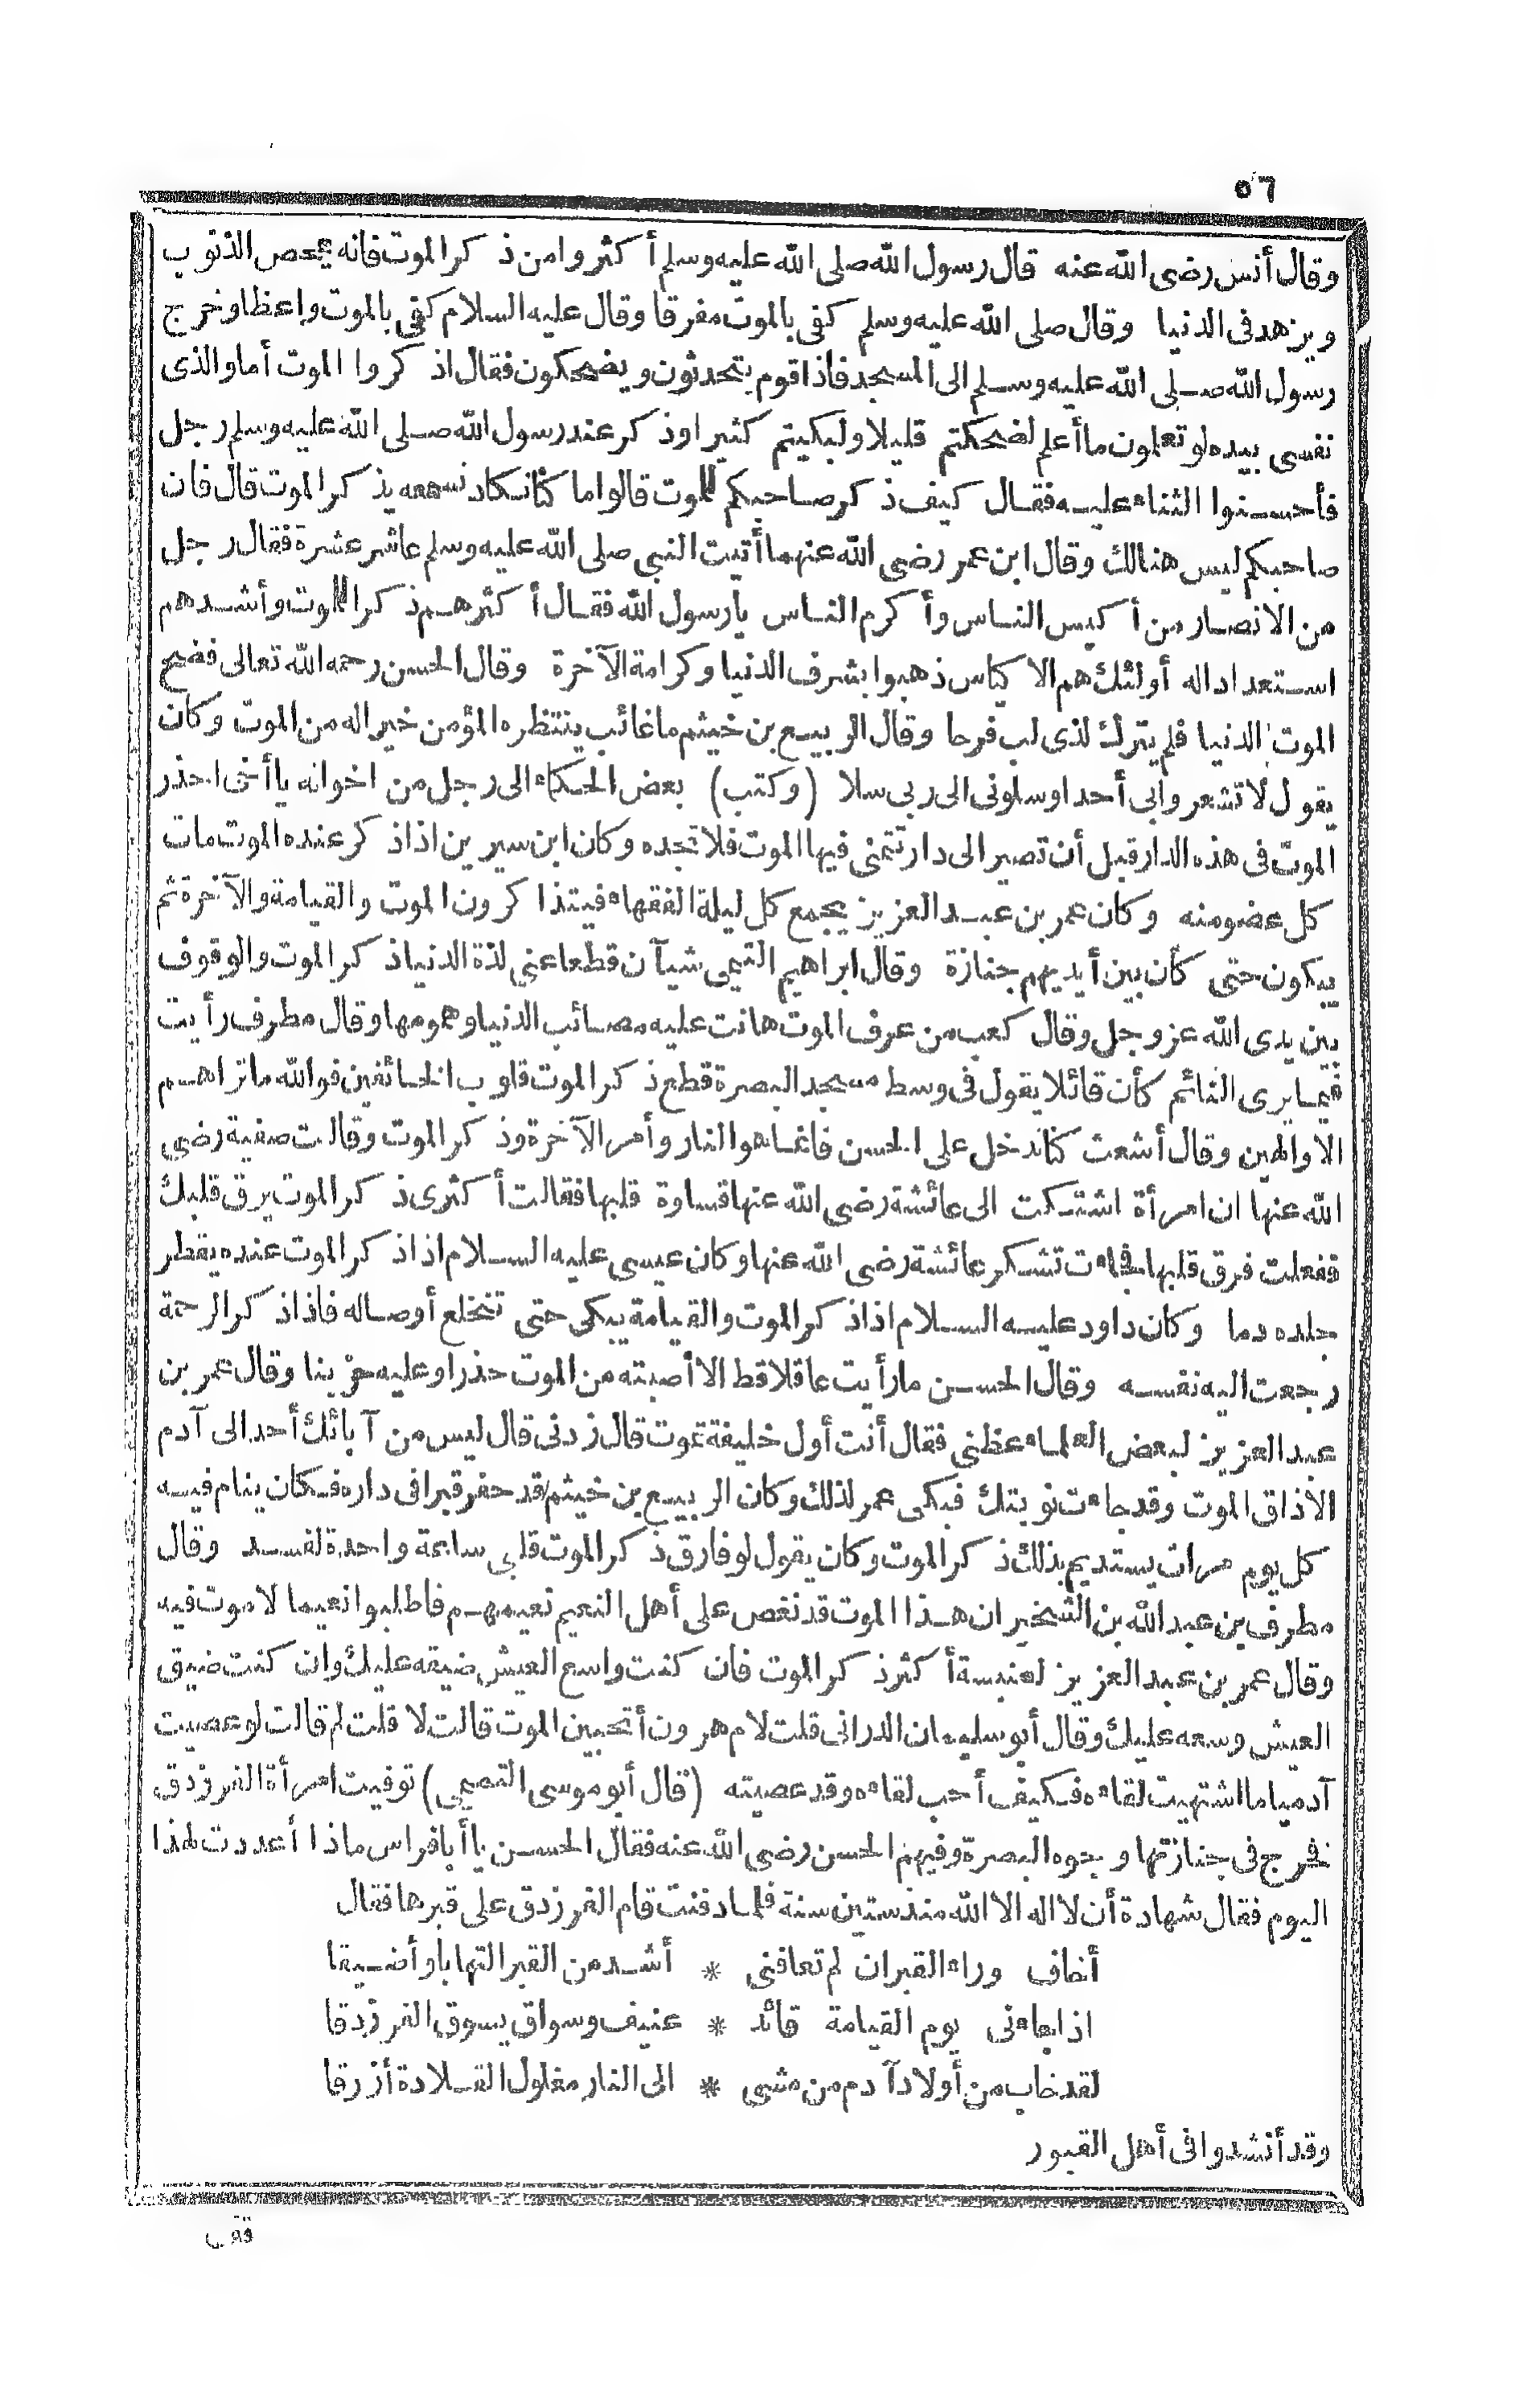 ٥٦
وقال أنس رضى الله عنه قال رسول الله صلى الله عليه وسلم أكثروا من ذكر الموت فانه يمحص الذنوب
ويزهد فى الدنيا وقال صلى الله عليه وسلم كفى بالموت مفرقا وقال عليه السلام كفى بالموت واعظا وخرج
رسول الله صلى الله عليه وسلم الى المسجد فاذا قوم يتحدثون ويضحكون فقال اذكروا الموت أما والذى
نفسى بيده لو تعلمون ما أعلم لضحكتم قليلا ولبكيتم كثيرا وذكر عند رسول الله صلى الله عليه وسلم رجل
فأحسنوا الثناء عليه فقال كيف ذكر صاحبكم للموت قالوا ما كنا نكاد نسمعه يذكر الموت قال فان
صاحبكم ليس هنالك وقال ابن عمر رضى الله عنهما أتيت النبى صلى الله عليه وسلم عاشر عشرة فقال رجل
من الانصار من أكيس الناس وأكرم الناس يا رسول الله فقال أكثرهم ذكرا للموت وأشدهم
استعدادا له أولئك هم الاكياس ذهبوا بشرف الدنيا وكرامة الآخرة وقال الحسن رحمه الله تعالى فضح
الموت الدنيا فلم يترك لذى لب فرحا وقال الربيع بن خيثم ما غائب ينتظره المؤمن خير اله من الموت وكان
يقول لا تشعروا بى أحدا وسلونى الى ربى سلا (وكتب) بعض الحكماء الى رجل من اخوانه يا أخى احذر
الموت فى هذه الدار قبل أن تصير الى دار تتمنى فيها الموت فلا تجده وكان ابن سيرين اذا ذكر عنده الموت مات
كل عضو منه وكان عمر بن عبد العزيز يجمع كل ليلة الفقهاء فيتذاكرون الموت والقيامة والآخرة ثم
يبكون حتى كأن بين أيديهم جنازة وقال ابراهيم التيمى شيآن قطعا عنى لذة الدنيا ذكر الموت والوقوف
بين يدى الله عز وجل وقال كعب من عرف الموت هانت عليه مصائب الدنيا وهمومها وقال مطرف رأيت
فيما يرى النائم كأن قائلا يقول فى وسط مسجد البصرة قطع ذكر الموت قلوب الخائفين فوالله ما تراهم
الا والهين وقال أشعث كنا ندخل على الحسن فانما هو النار وأمر الآخرة وذكر الموت وقالت صفية رضى
الله عنها ان امرأة اشتكت الى عائشة رضى الله عنها قساوة قلبها فقالت أكثرى ذكر الموت يرق قلبك
ففعلت فرق قلبها فجاءت تشكر عائشة رضى الله عنها وكان عيسى عليه السلام اذا ذكر الموت عنده يقطر
جلده دما وكان داود عليه السلام اذا ذكر الموت والقيامة يبكى حتى تتخلع أوصاله فاذا ذكر الرحمة
رجعت اليه نفسه وقال الحسن ما رأيت عاقلا قط الا أصبته من الموت حذرا وعليه حزينا وقال عمر بن
عبد العزيز لبعض العلماء عظنى فقال أنت أول خليفة تموت قال زدنى قال ليس من آبائك أحد الى آدم
الا ذاق الموت وقد جاءت نوبتك فبكى عمر لذلك وكان الربيع بن خيثم قد حفر قبرا فى داره فكان ينام فيه
كل يوم مرات يستديم بذلك ذكر الموت وكان يقول لو فارق ذكر الموت قلبى ساعة واحدة لفسد وقال
مطرف بن عبد الله بن الشخير ان هذا الموت قد نغص على أهل النعيم نعيمهم فاطلبوا نعيما لا موت فيه
وقال عمر بن عبد العزيز لعنبسة أكثر ذكر الموت فان كنت واسع العيش ضيقه عليك وان كنت ضيق
العيش وسعه عليك وقال أبو سليمان الدرانى قلت لام هرون أتحبين الموت قالت لا قلت لم قالت لو عصيت
آدميا ما اشتهيت لقاءه فكيف أحب لقاءه وقد عصيته (قال أبو موسى التميمى) توفيت امرأة الفرزدق
فخرج فى جنازتها وجوه البصرة وفيهم الحسن رضى الله عنه فقال الحسن يا أبا فراس ماذا أعددت لهذا
اليوم فقال شهادة أن لا اله الا الله منذ ستين سنة فلما دفنت قام الفرزدق على قبرها فقال
أخاف وراء القبر ان لم تعافنى * أشد من القبر التهابا وأضيقا
اذا جاءنى يوم القيامة قائد * عنيف وسواق يسوق الفرزدقا
لقد خاب من أولاد آدم من مشى * الى النار مغلول القلادة أزرقا
وقد أنشدوا فى أهل القبور
قف